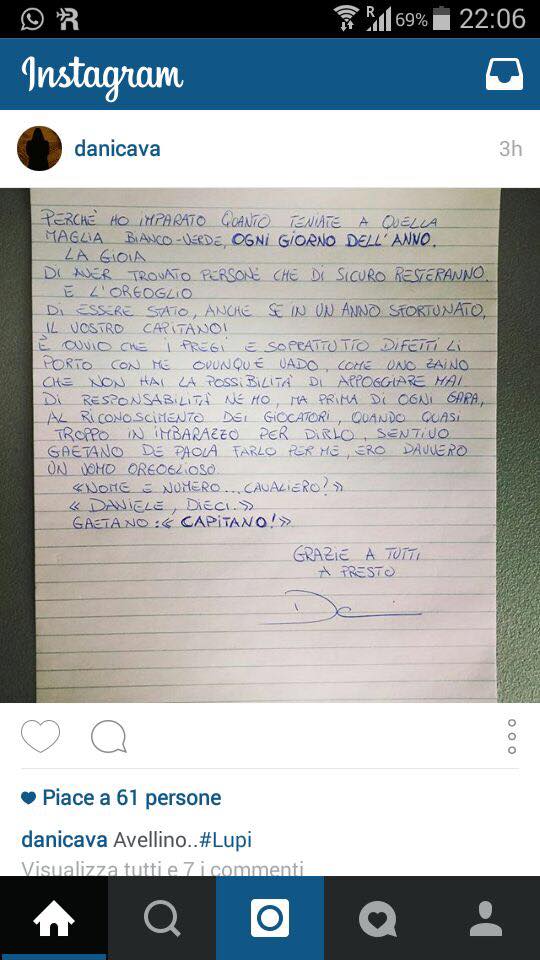 R 69% 22:06
Instagram
danicava 3h
PERCHÈ HO IMPARATO QUANTO TENIATE A QUELLA
MAGLIA BIANCO-VERDE, OGNI GIORNO DELL'ANNO.
LA GIOIA
DI AVER TROVATO PERSONE CHE DI SICURO RESTERANNO.
E L'ORGOGLIO
DI ESSERE STATO, ANCHE SE IN UN ANNO SFORTUNATO,
IL VOSTRO CAPITANO!
È OVVIO CHE I PREGI E SOPRATTUTTO DIFETTI LI
PORTO CON ME OVUNQUE VADO, COME UNO ZAINO
CHE NON HAI LA POSSIBILITÀ DI APPOGGIARE MAI
DI RESPONSABILITÀ NE HO, MA PRIMA DI OGNI GARA,
AL RICONOSCIMENTO DEI GIOCATORI, QUANDO QUASI
TROPPO IN IMBARAZZO PER DIRLO, SENTIVO
GAETANO DE PAOLA FARLO PER ME, ERO DAVVERO
UN UOMO ORGOGLIOSO
«NOME E NUMERO... CAVALIERO?»
« DANIELE, DIECI.»
GAETANO:« CAPITANO!»
GRAZIE A TUTTI
A PRESTO
Piace a 61 persone
danicava Avellino..#Lupi
Visualizza tutti e 7 i commenti